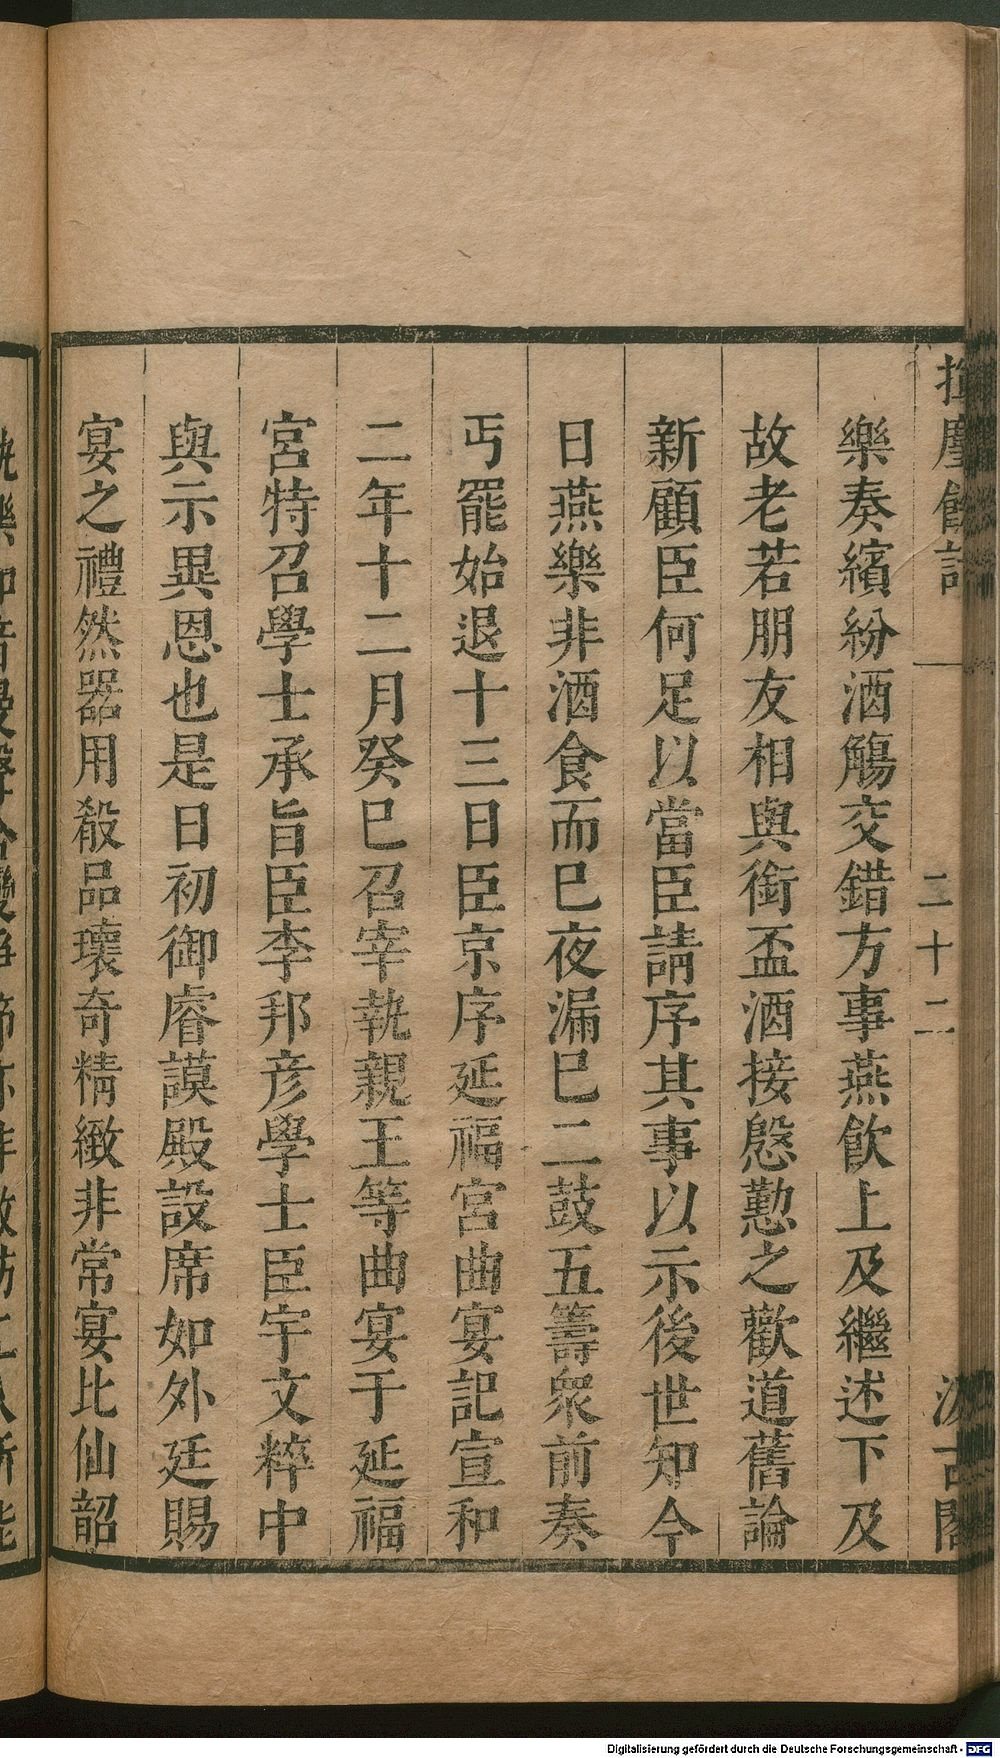 揮麈餘話
二十二
汲古閣
樂奏繽紛酒觴交錯方事燕飲上及繼述下及
故老若朋友相與銜盃酒接慇懃之歡道舊論
新顧臣何足以當臣請序其事以示後世知今
日燕樂非酒食而已夜漏已二鼓五籌衆前奏
丐罷始退十三日臣京序延福宮曲宴記宣和
二年十二月癸巳召宰執親王等曲宴于延福
宮特召學士承旨臣李邦彦學士臣宇文粹中
與示異恩也是日初御睿謨殿設席如外廷賜
宴之禮然器用殽品瓌奇精緻非常宴比仙韶
Digitalisierung gefördert durch die Deutsche Forschungsgemeinschaft - DFG